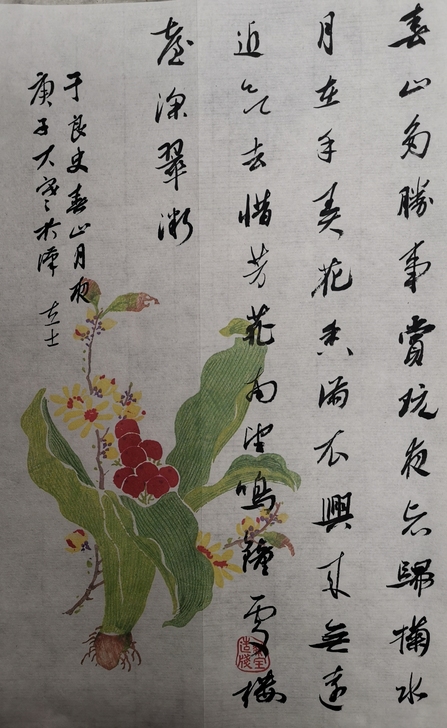 春山多勝事賞玩夜忘歸掬水
月在手弄花香滿衣興來無遠
近欲去惜芳菲南望鳴鐘處樓
臺深翠微
于良史春山月夜
庚子大寒於漢 立士